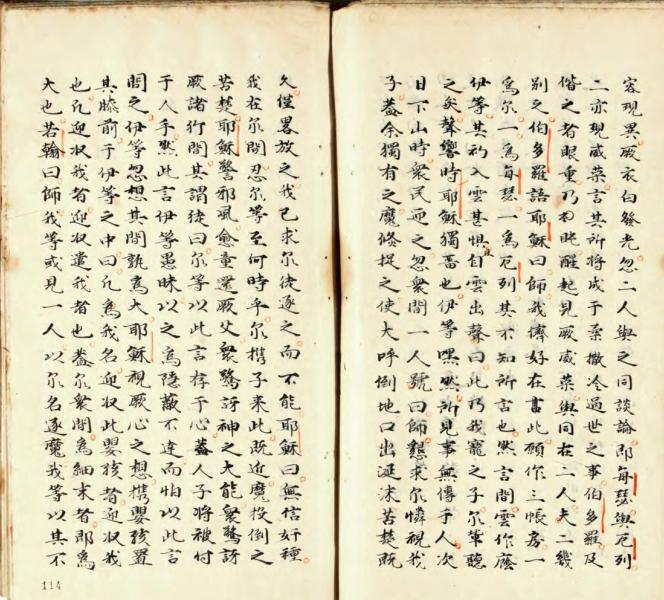 容現異厥衣白發光忽二人與之同談論即每瑟與厄列
二亦現威荣言其所將成于柔撒冷過世之事伯多羅及
偕之者眼重乃相眺醒起見厥威荣與同在二人夫二幾
別之伯多羅語耶穌曰師我儕好在此願作三帳房一
為尔一為每瑟一為厄列其不知所言也然言間雲作廕
伊等其初入雲甚惧且自雲出聲曰此乃我寵之子尔輩聽
之矣聲響時耶穌獨焉也伊等嘿然所見事無傳乎人次
日下山時衆民迎之忽衆間一人號曰師懇求尔憐視我
子蓋余獨有之魔倏捉之使大呼倒地口出涎沫苦楚既
久僅畧放之我已求尔徒逐之而不能耶穌曰無信奸種
我在尔間忍尔等至何時乎尔携子来此既近魔投倒之
苦楚耶穌警邪風愈童還厥父衆驚訝神之大能衆驚訝
厥諸行間其謂徒曰尔等以此言存于心蓋人子將被付
于人手然此言伊等愚昧以之為隱蔽不達而怕以此言
問之伊等忽想其間孰為大耶穌視厥心之想携嬰孩置
其膝前于伊等之中曰凡為我名迎収此嬰孩者迎収我
也凡迎収我者迎収遣我者也蓋尔衆間為細末者即為
大也若翰曰師我等或見一人以尔名逐魔我等以其不
114